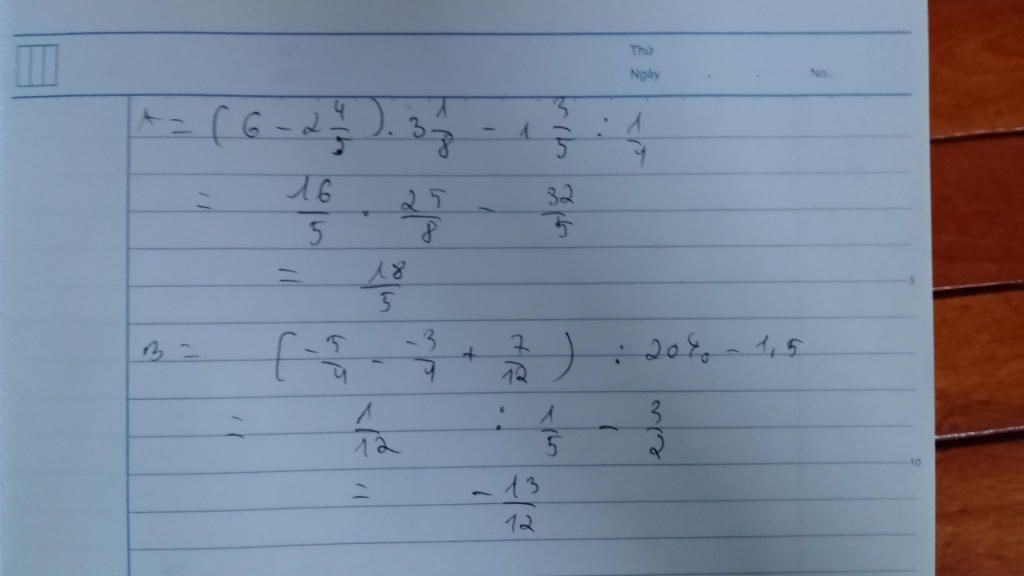 Thứ
Ngày . . No.
A = ( 6 - 2 4/5 ) . 3 1/8 - 1 3/5 : 1/4
= 16/5 . 25/8 - 32/5
= 18/5
5
B = ( -5/4 - -3/4 + 7/12 ) : 20% - 1,5
= 1/12 : 1/5 - 3/2
10
= - 13/12